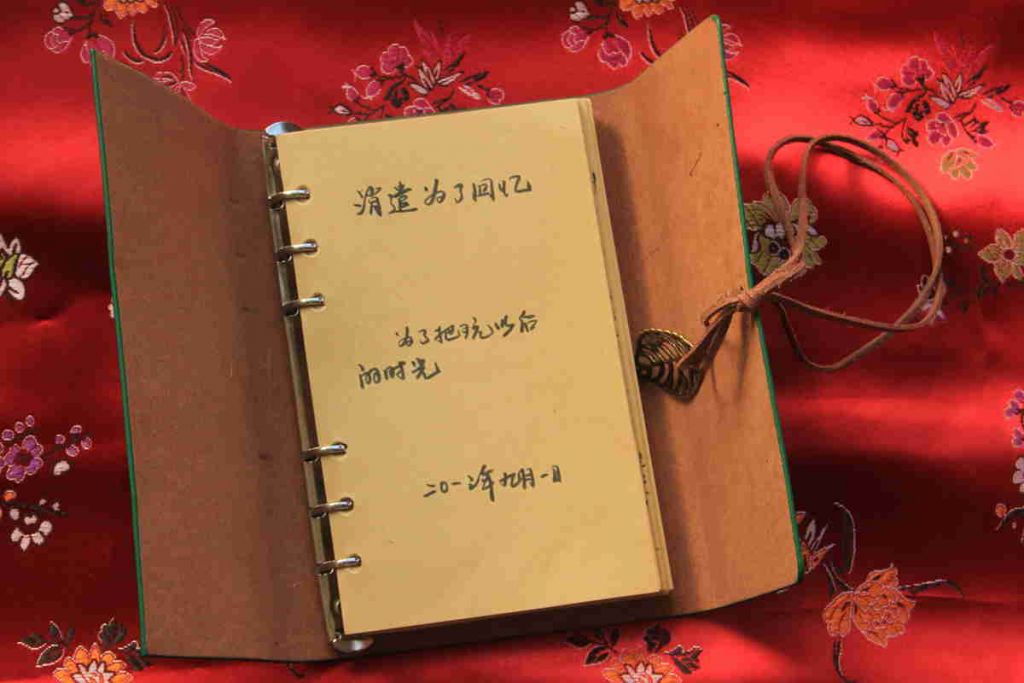 消遣为了回忆
为了把玩以后
的时光
二〇一二年九月一日